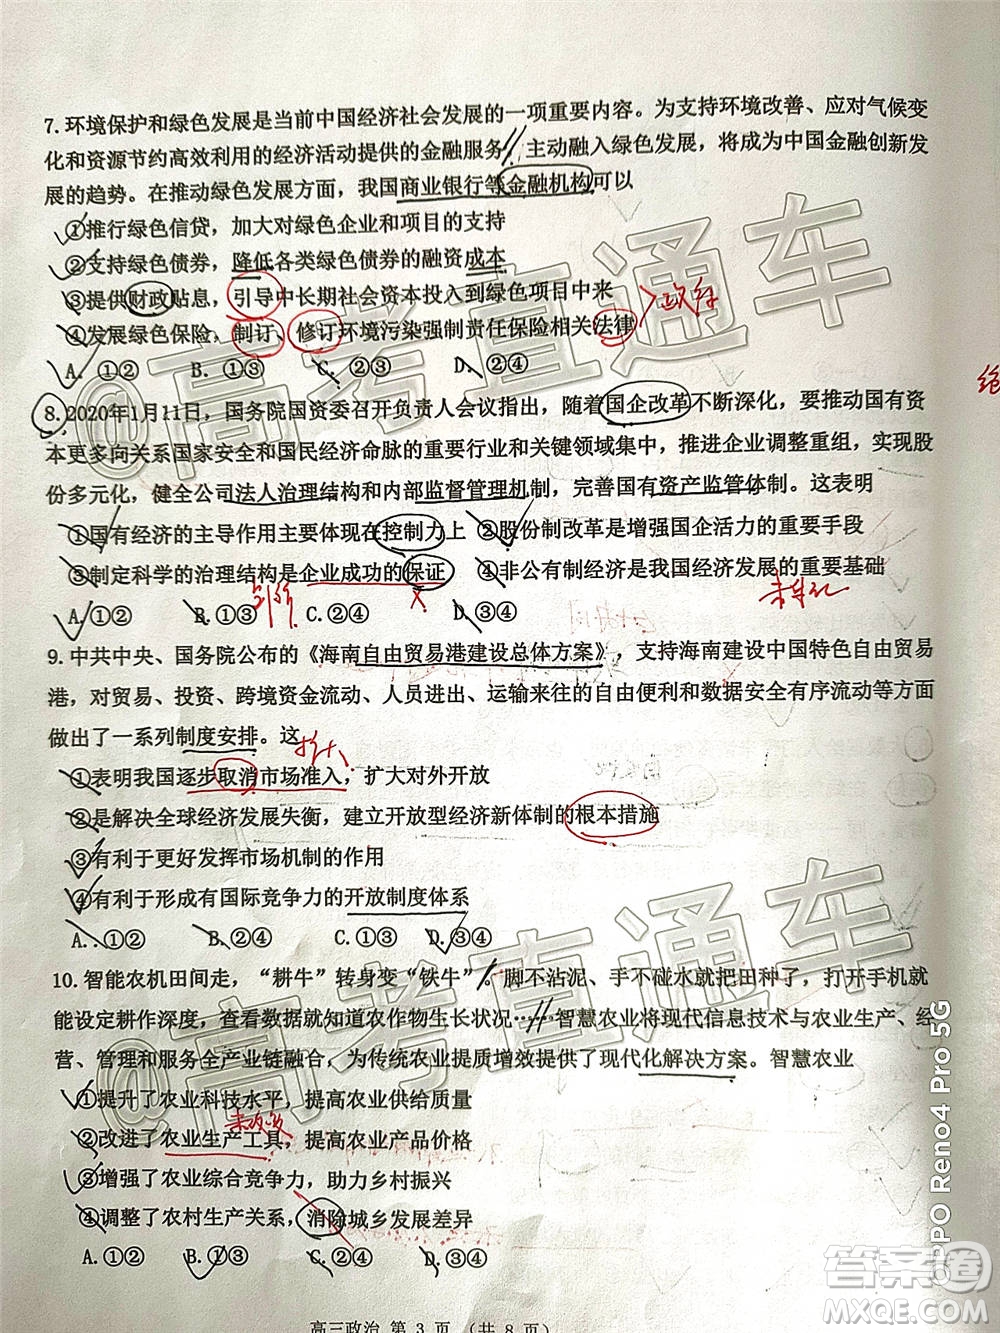 7.环境保护和绿色发展是当前中国经济社会发展的一项重要内容。为支持环境改善、应对气候变
化和资源节约高效利用的经济活动提供的金融服务，主动融入绿色发展，将成为中国金融创新发
展的趋势。在推动绿色发展方面，我国商业银行等金融机构可以
①推行绿色信贷，加大对绿色企业和项目的支持
②支持绿色债券，降低各类绿色债券的融资成本
③提供财政贴息，引导中长期社会资本投入到绿色项目中来
④发展绿色保险，制订、修订环境污染强制责任保险相关法律
A. ①② B. ①③ C. ②③ D. ②④
8.2020年1月11日，国务院国资委召开负责人会议指出，随着国企改革不断深化，要推动国有资
本更多向关系国家安全和国民经济命脉的重要行业和关键领域集中，推进企业调整重组，实现股
份多元化，健全公司法人治理结构和内部监督管理机制，完善国有资产监管体制。这表明
①国有经济的主导作用主要体现在控制力上 ②股份制改革是增强国企活力的重要手段
③制定科学的治理结构是企业成功的保证 ④非公有制经济是我国经济发展的重要基础
A. ①② B. ①③ C. ②④ D. ③④
9.中共中央、国务院公布的《海南自由贸易港建设总体方案》，支持海南建设中国特色自由贸易
港，对贸易、投资、跨境资金流动、人员进出、运输来往的自由便利和数据安全有序流动等方面
做出了一系列制度安排。这
①表明我国逐步取消市场准入，扩大对外开放
②是解决全球经济发展失衡，建立开放型经济新体制的根本措施
③有利于更好发挥市场机制的作用
④有利于形成有国际竞争力的开放制度体系
A. ①② B. ②④ C. ①③ D. ③④
10.智能农机田间走，“耕牛”转身变“铁牛”。脚不沾泥、手不碰水就把田种了，打开手机就
能设定耕作深度，查看数据就知道农作物生长状况……智慧农业将现代信息技术与农业生产、经
营、管理和服务全产业链融合，为传统农业提质增效提供了现代化解决方案。智慧农业
①提升了农业科技水平，提高农业供给质量
②改进了农业生产工具，提高农业产品价格
③增强了农业综合竞争力，助力乡村振兴
④调整了农村生产关系，消除城乡发展差异
A. ①② B. ①③ C. ②④ D. ③④
高三政治 第 3 页 （共 8 页）
@高考直通车
@高考直通车
OPPO Reno4 Pro 5G
答案圈
MXQE.COM